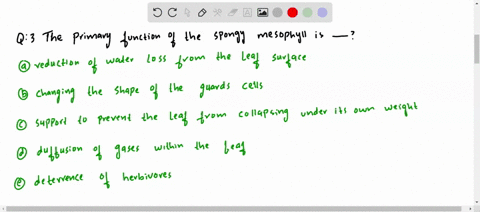 Q:3 The primary function of the spongy mesophyll is __?
a reduction of water loss from the leaf surface
b changing the shape of the guards cells
c support to prevent the leaf from collapsing under its own weight
d duffusion of gases within the leaf
e deterrence of herbivores